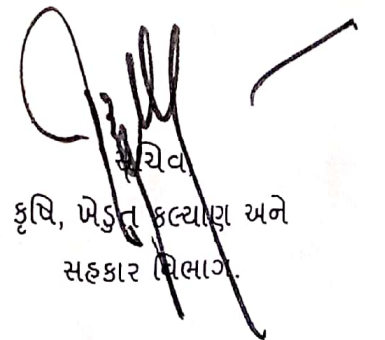 સચિવ,
કૃષિ, ખેડુત કલ્યાણ અને
સહકાર વિભાગ.